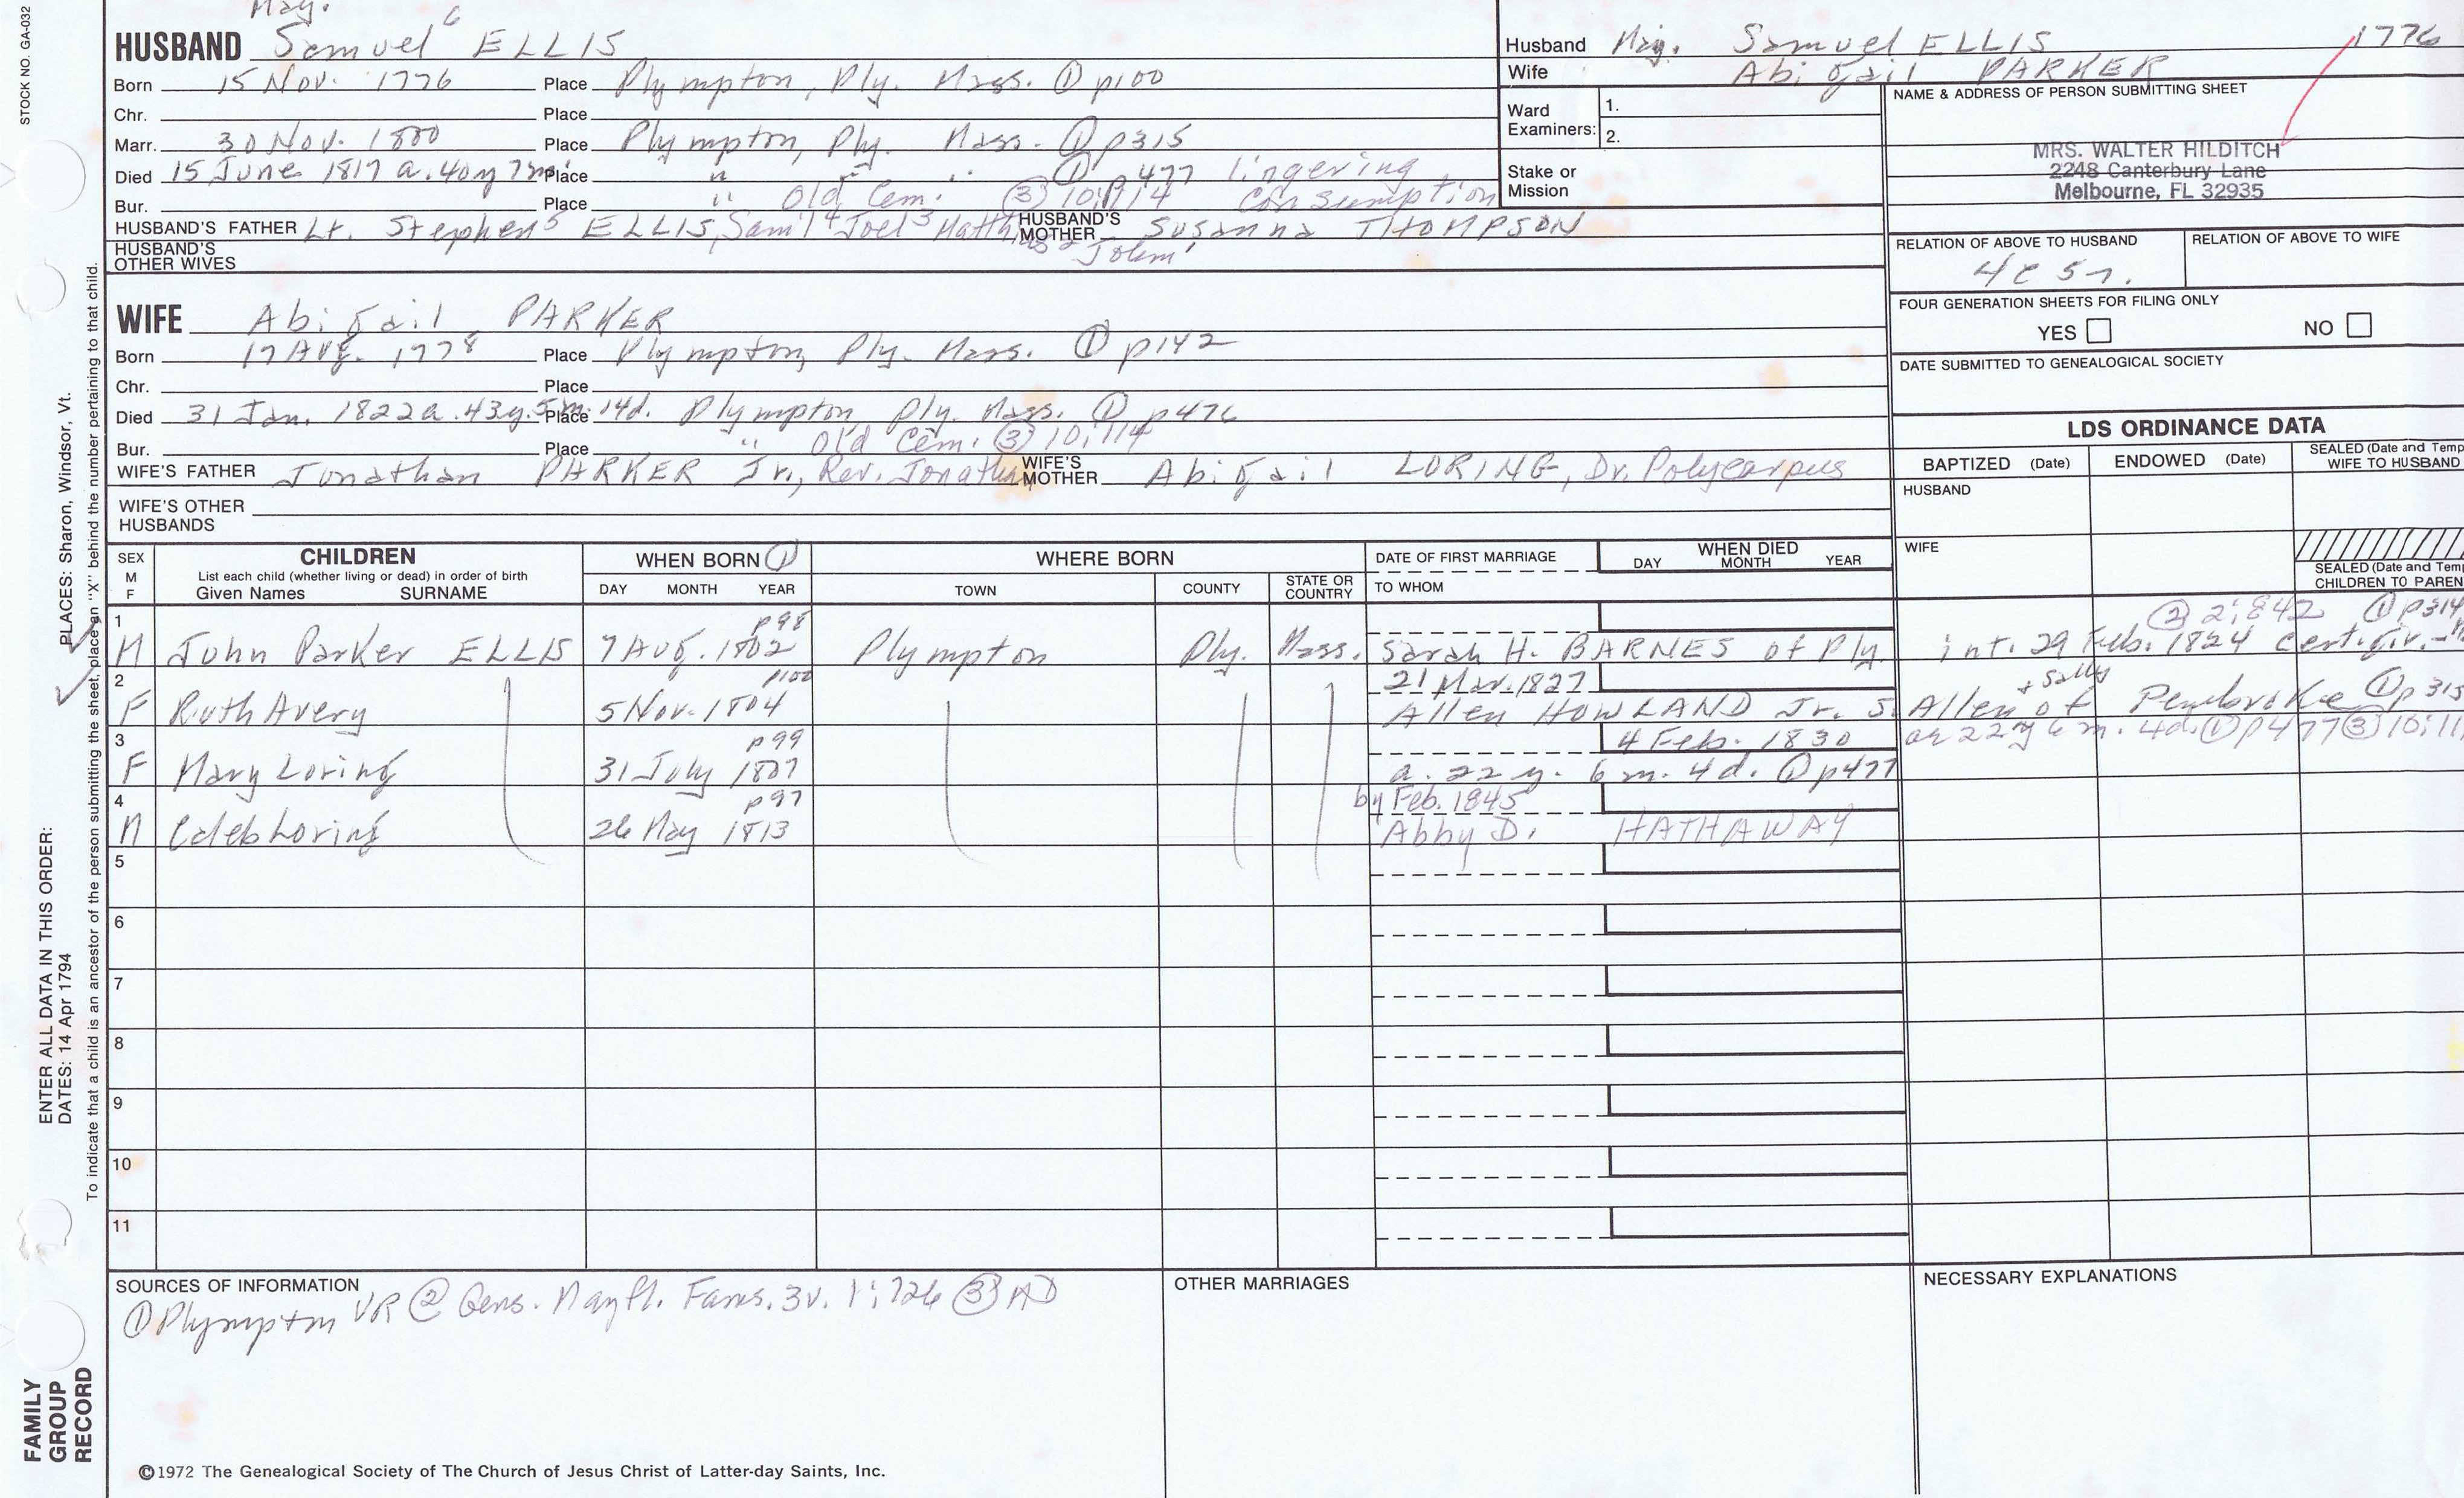 STOCK NO. GA-032
Maj.
HUSBAND Samuel 6 ELLIS
Born 15 Nov. 1776 Place Plympton, Ply. Mass. ① p100
Chr. Place
Marr. 30 Nov. 1800 Place Plympton, Ply. Mass. ① p315
Died 15 June 1817 a. 40 y 7 m Place " " " ① p477 lingering
Bur. Place " Old Cem. ③ 10:114 consumption
HUSBAND'S FATHER Lt. Stephen 5 ELLIS, Sam'l 4 Joel 3 Matthias 2 John 1 HUSBAND'S MOTHER Susanna THOMPSON
HUSBAND'S OTHER WIVES
WIFE Abigail PARKER
Born 17 Aug. 1778 Place Plympton, Ply. Mass. ① p142
Chr. Place
Died 31 Jan. 1822 a. 43 y. 5 m. 14 d. Place Plympton Ply. Mass. ① p476
Bur. Place " Old Cem. ③ 10:114
WIFE'S FATHER Jonathan PARKER Jr., Rev. Jonathan WIFE'S MOTHER Abigail LORING, Dr. Polycarpus
WIFE'S OTHER HUSBANDS
Husband Maj. Samuel ELLIS 1776
Wife Abigail PARKER
Ward Examiners: 1.
2.
Stake or Mission
NAME & ADDRESS OF PERSON SUBMITTING SHEET
MRS. WALTER HILDITCH
2248 Canterbury Lane
Melbourne, FL 32935
RELATION OF ABOVE TO HUSBAND RELATION OF ABOVE TO WIFE
4c 5r.
FOUR GENERATION SHEETS FOR FILING ONLY
YES NO
DATE SUBMITTED TO GENEALOGICAL SOCIETY
LDS ORDINANCE DATA
BAPTIZED (Date) ENDOWED (Date) SEALED (Date and Temp
WIFE TO HUSBAND
HUSBAND
WIFE
SEALED (Date and Temp
CHILDREN TO PAREN
SEX M F CHILDREN WHEN BORN ① WHERE BORN DATE OF FIRST MARRIAGE WHEN DIED
List each child (whether living or dead) in order of birth
Given Names SURNAME DAY MONTH YEAR TOWN COUNTY STATE OR COUNTRY TO WHOM DAY MONTH YEAR
1 p98 ② 2:842 ① p314
M John Parker ELLIS 7 Aug. 1802 Plympton Ply. Mass. Sarah H. BARNES of Ply. int. 29 Feb. 1824 cert. giv.
2 p100 21 Mar. 1827 + Sally
F Ruth Avery 5 Nov. 1804 Allen HOWLAND Jr. s. Allen of Pembroke ① p315
3 p99 4 Feb. 1830 ae 22 y 6 m. 4 d. ① p477 ③ 10:11
F Mary Loring 31 July 1807 a. 22 y. 6 m. 4 d. ① p477
4 p97 by Feb. 1845
M Caleb Loring 26 May 1813 Abby D. HATHAWAY
5
6
7
8
9
10
11
SOURCES OF INFORMATION
① Plympton VR ② Gens. Mayfl. Fams. 3v. 1:726 ③ MD
OTHER MARRIAGES
NECESSARY EXPLANATIONS
©1972 The Genealogical Society of The Church of Jesus Christ of Latter-day Saints, Inc.
FAMILY GROUP RECORD
ENTER ALL DATA IN THIS ORDER:
DATES: 14 Apr 1794
PLACES: Sharon, Windsor, Vt.
To indicate that a child is an ancestor of the person submitting the sheet, place an "X" behind the number pertaining to that child.